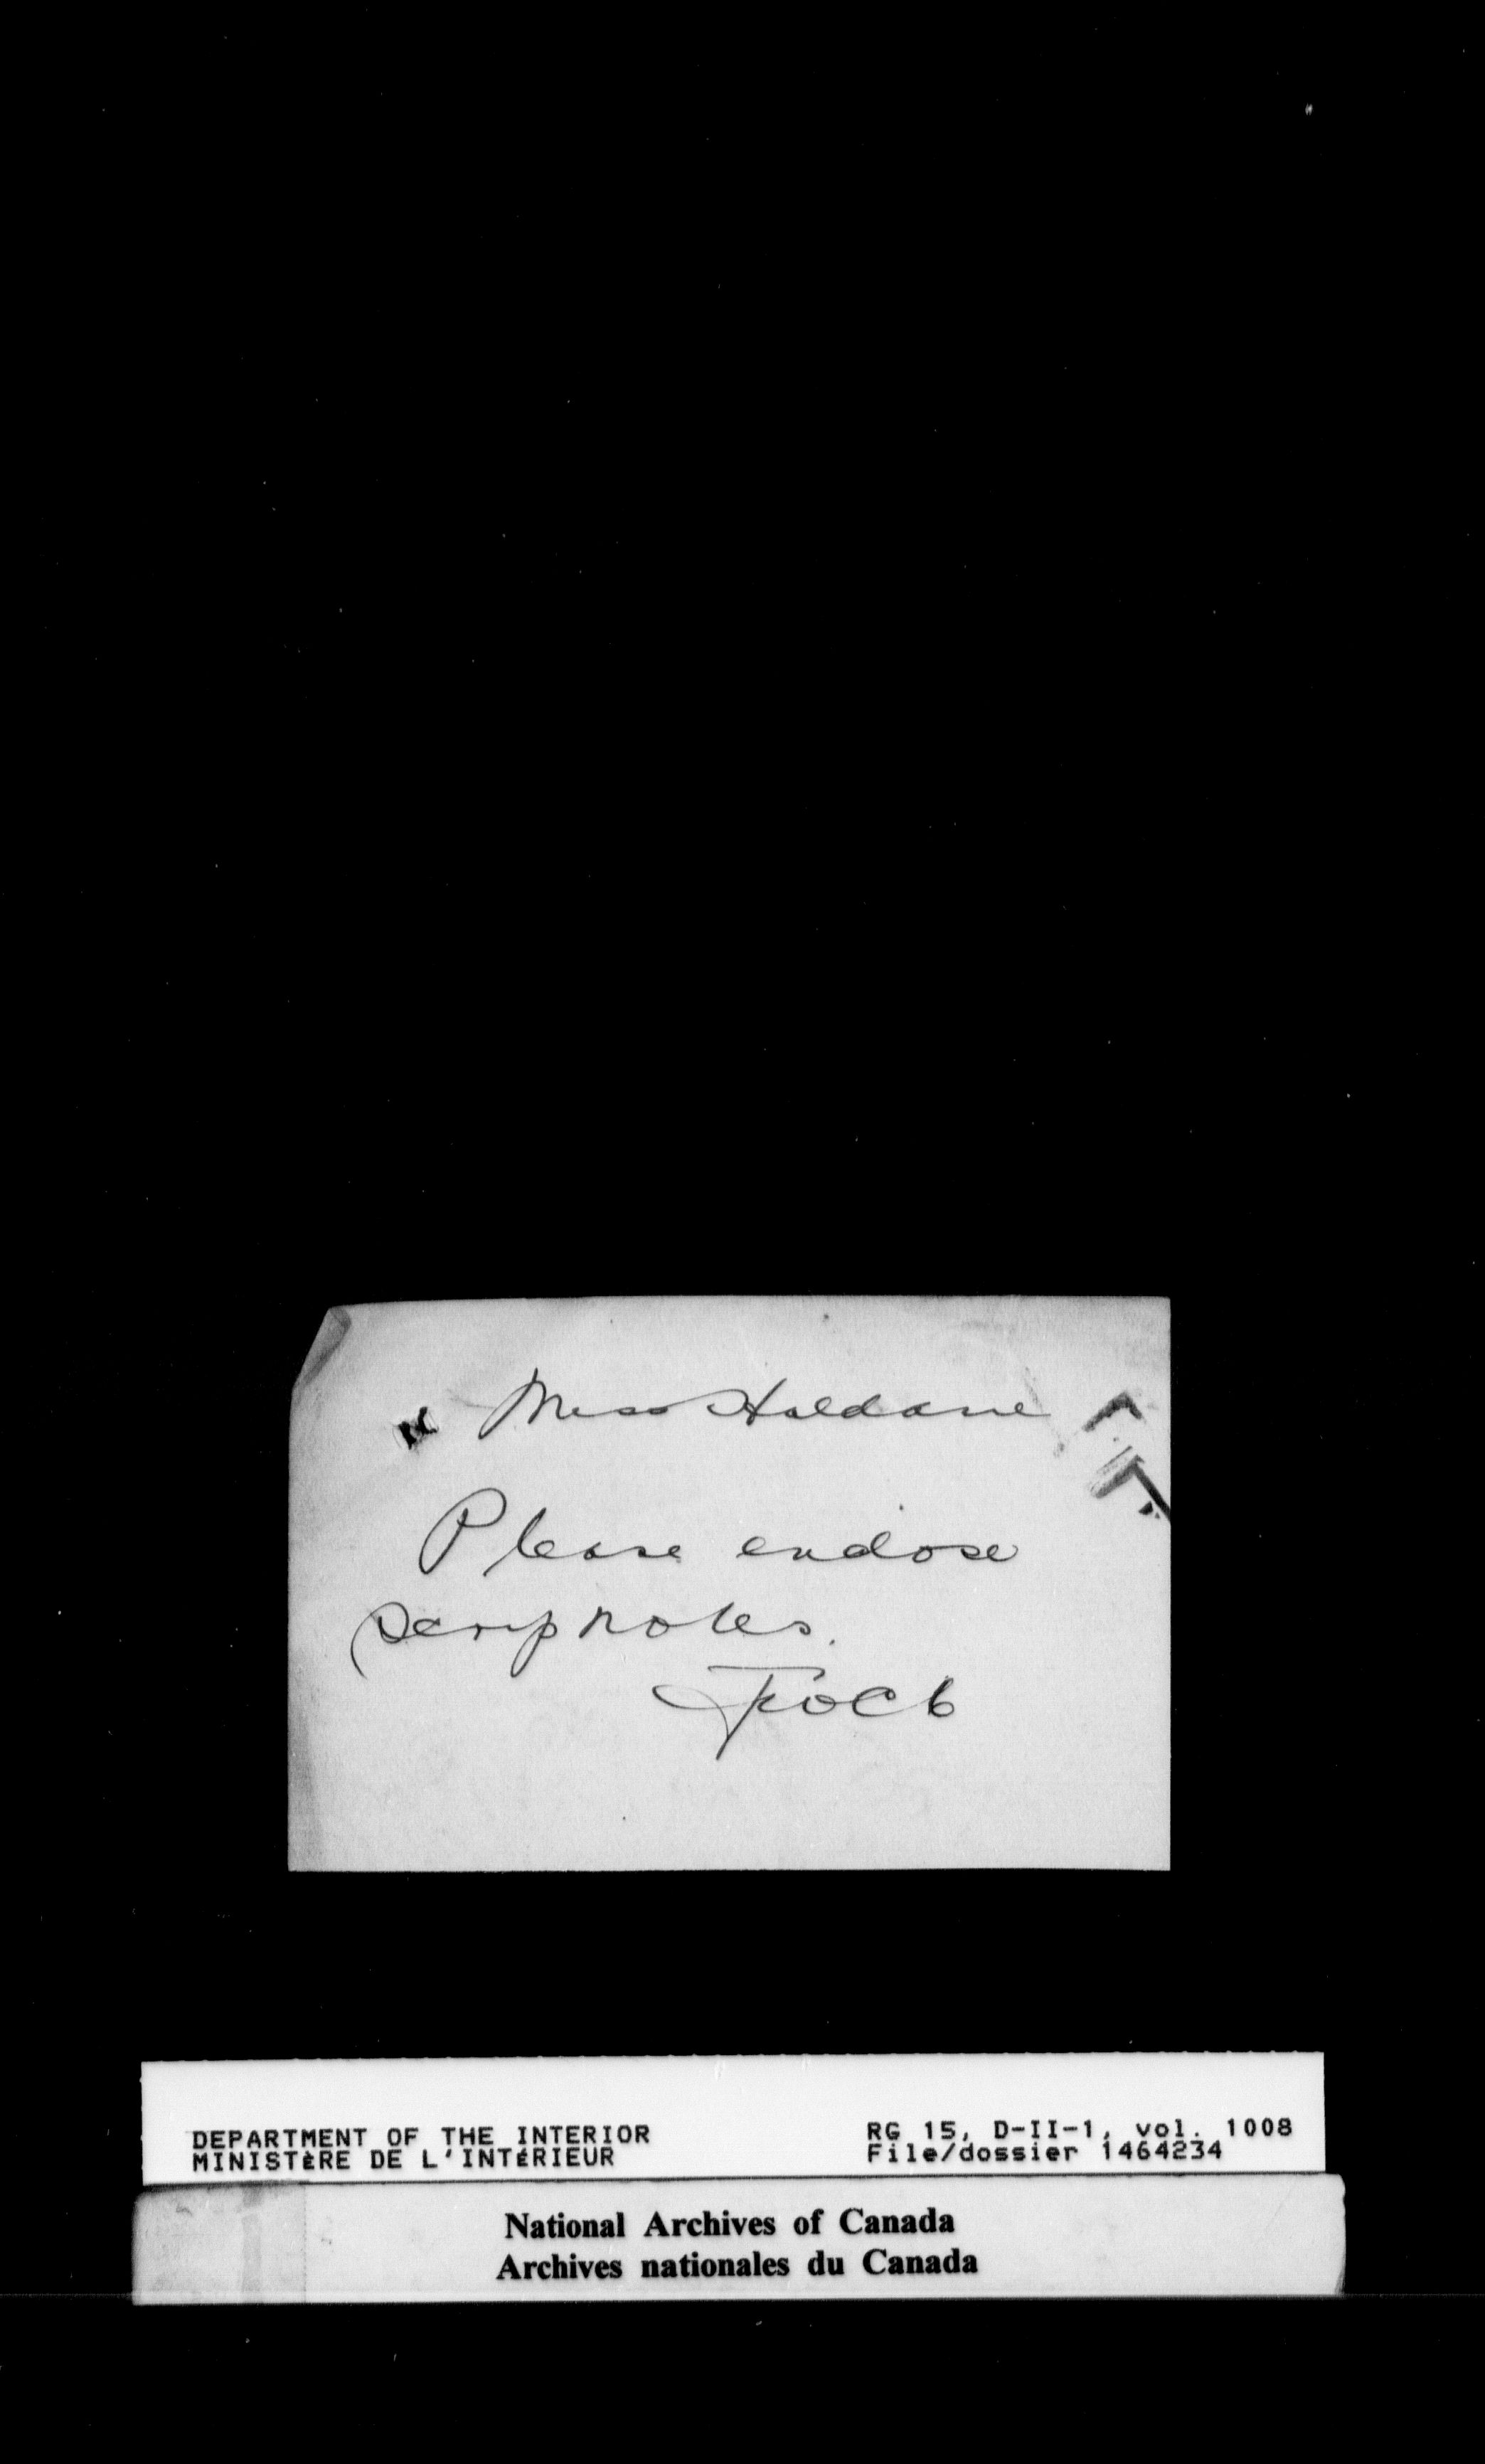 Miss Haldane
Please enclose
scrip notes.
DEPARTMENT OF THE INTERIOR
MINISTÈRE DE L'INTÉRIEUR
RG 15, D-II-1, vol. 1008
File/dossier 1464234
National Archives of Canada
Archives nationales du Canada